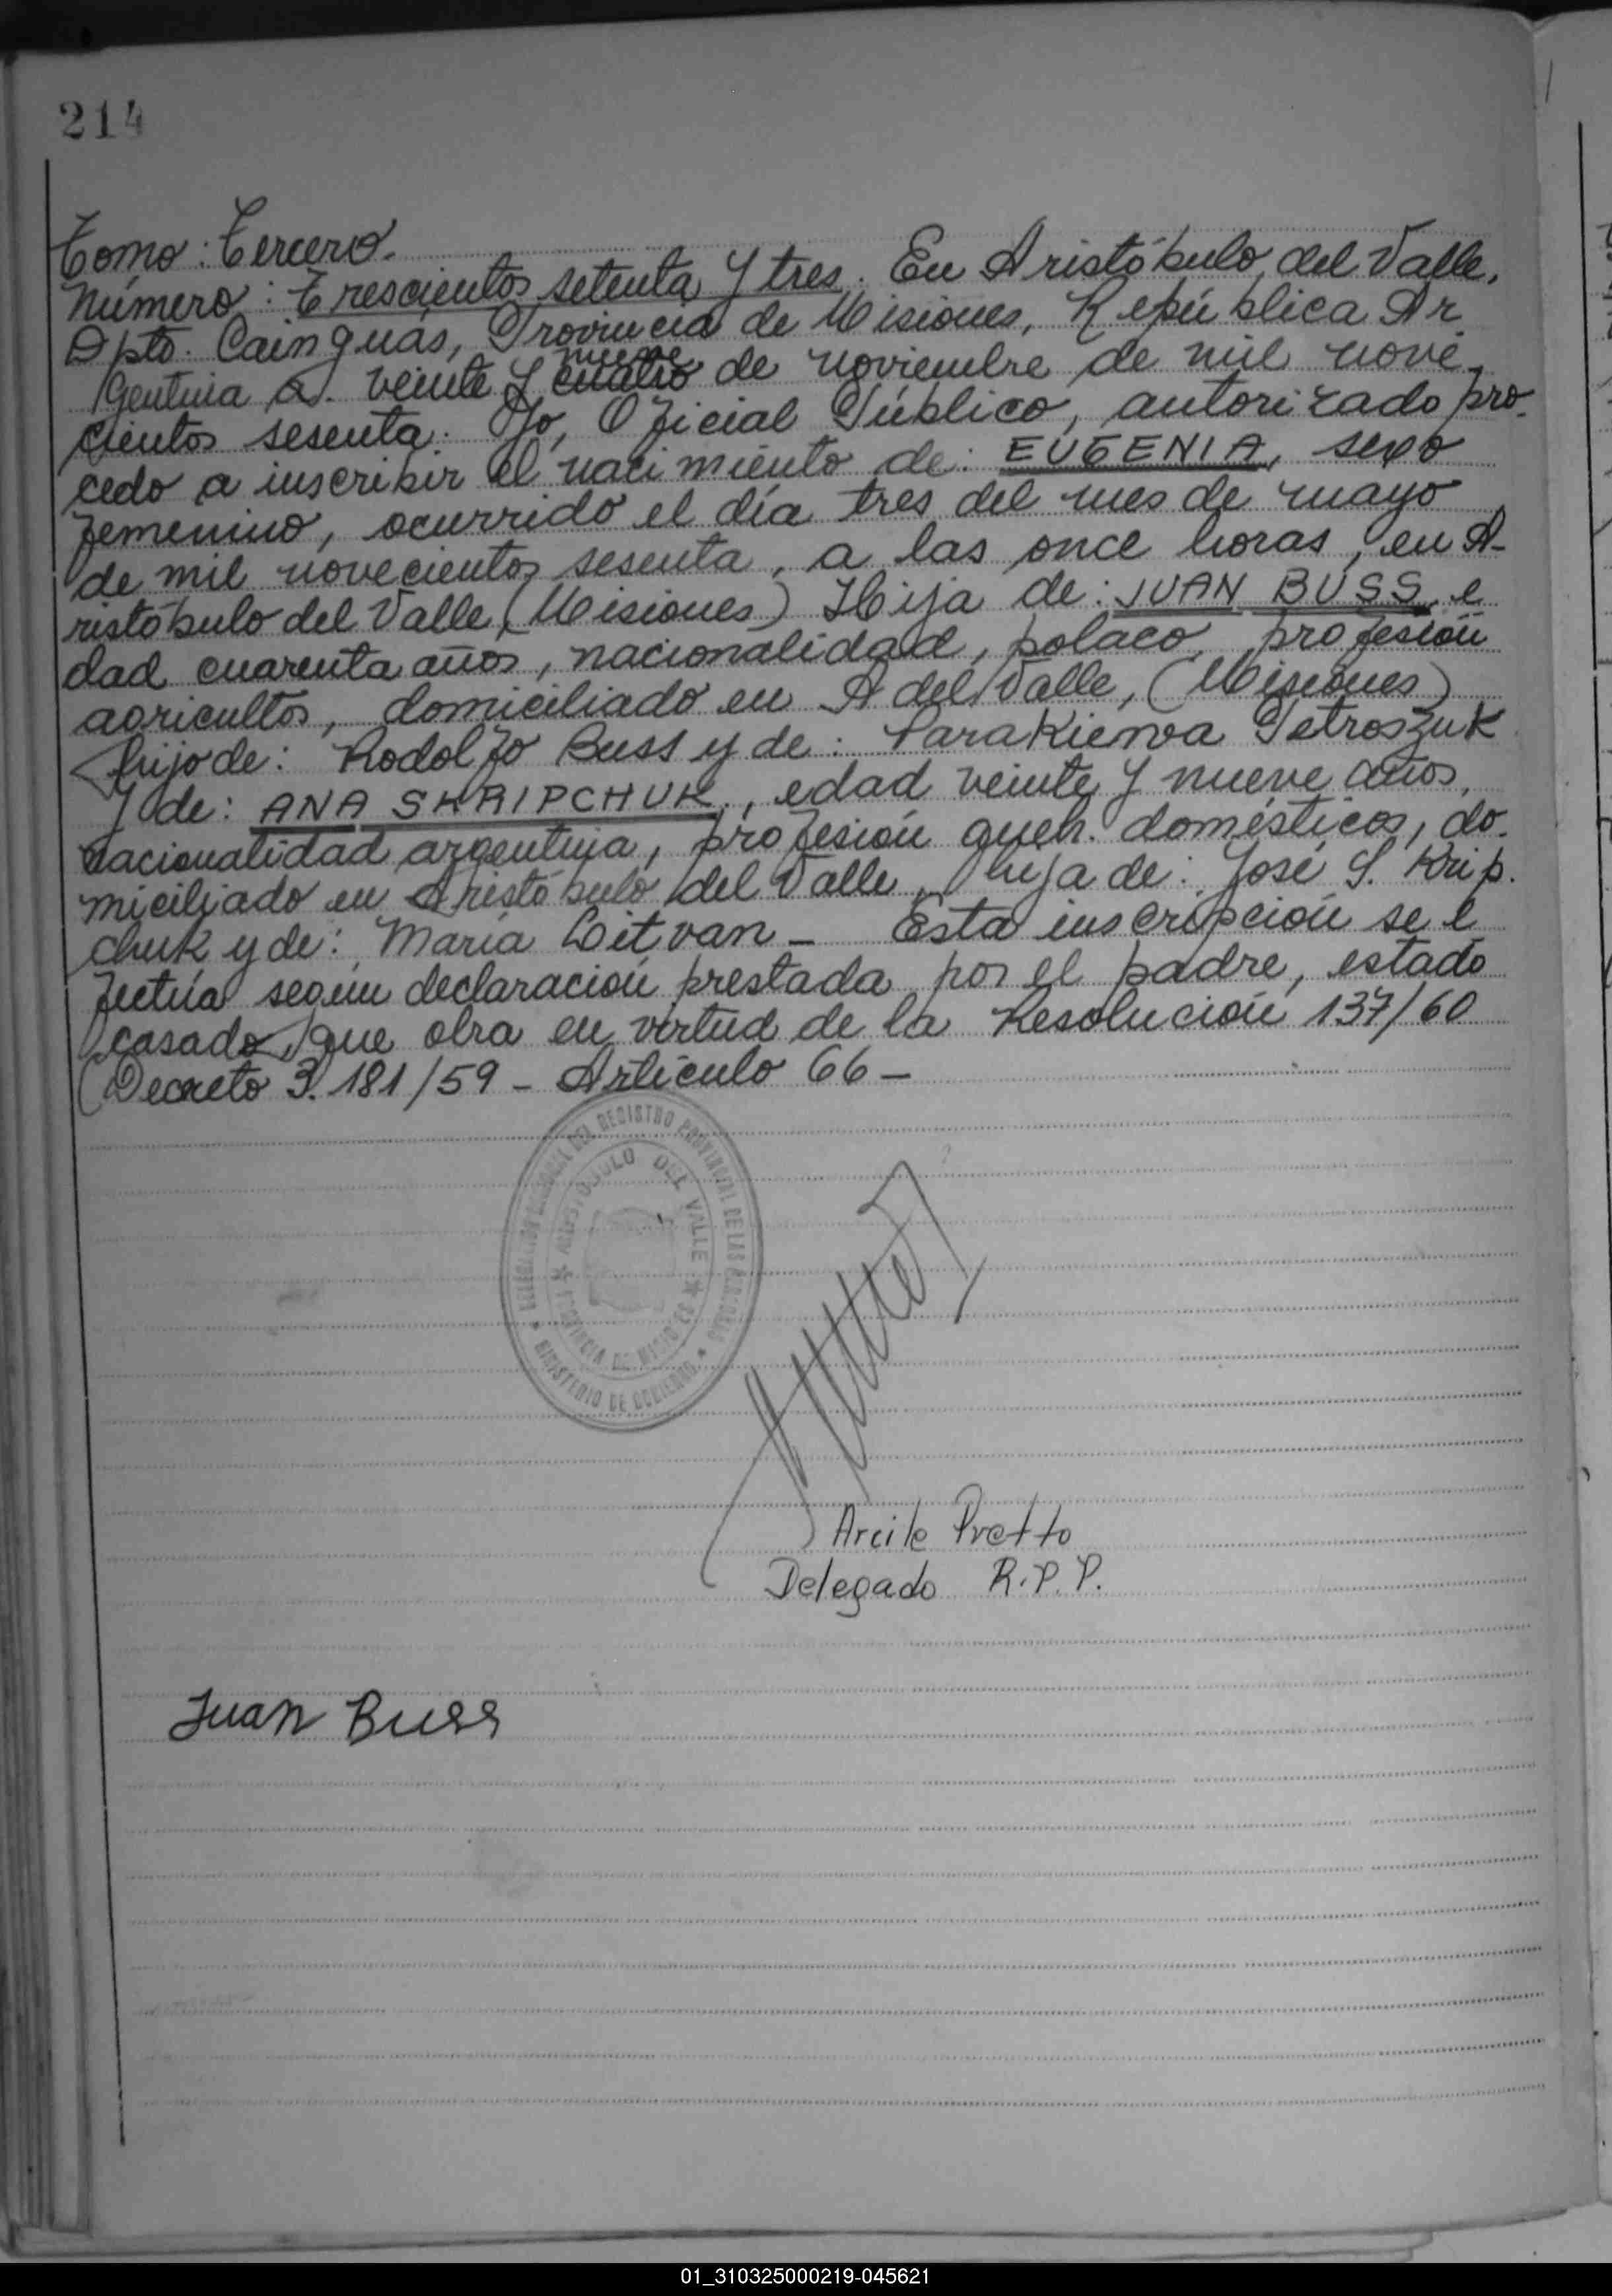 214
Tomo: Tercero.
Número: Trescientos setenta y tres. En Aristóbulo del Valle,
Dpto. Cainguás, Provincia de Misiones, República Ar
gentina a. veinte y cuatro de noviembre de mil nove
nueve
cientos sesenta. Yo, Oficial Público, autorizado pro-
cedo a inscribir el nacimiento de: EUGENIA, sexo
femenino, ocurrido el día tres del mes de mayo
de mil novecientos sesenta, a las once horas, en A-
ristóbulo del Valle, (Misiones) Hija de: JUAN BUSS, e
dad cuarenta años, nacionalidad, polaco, profesión
agricultos, domiciliado en A del Valle, (Misiones)
hijo de: Rodolfo Buss y de: Parakienva Petroszuk
y de: ANA SKRIPCHUK, edad veinte y nueve años,
nacionalidad argentina, profesión queh. domésticos, do-
miciliado en Aristóbulo del Valle, hija de: José S. Krip.
chuk y de: María Litvan - Esta inscripción se e
fectúa según declaración prestada por el padre, estado
casado, que obra en virtud de la Resolución 137/60
(Decreto 3.181/59 - Artículo 66 -
DEL REGISTRO PROVINCIAL DE LAS PERSONAS
ARISTOBULO DEL VALLE
PROVINCIA DE MISIONES
MINISTERIO DE GOBIERNO
Arcile Pretto
Delegado R.P.P.
Juan Buss
01_310325000219-045621